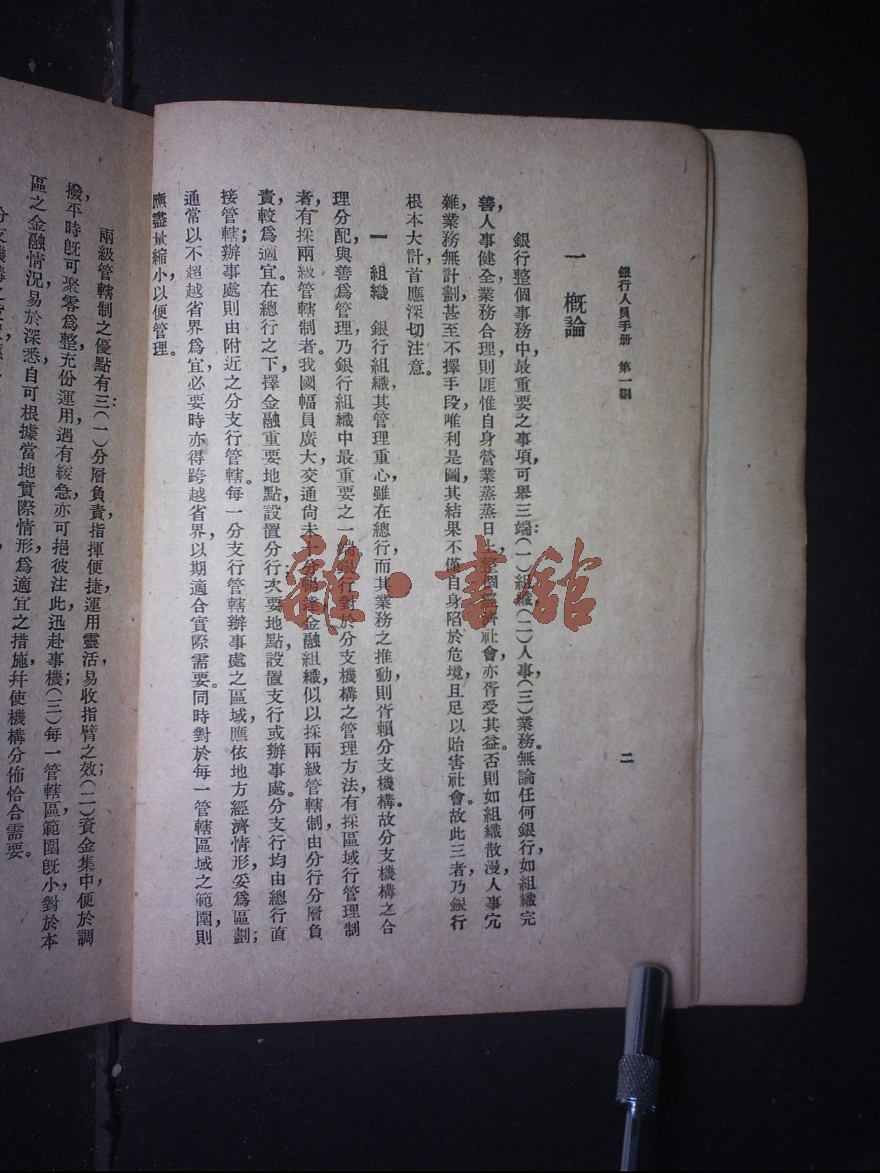 銀行人員手册　第一編
二
一　概論
銀行整個事務中，最重要之事項，可舉三端：（一）組織，（二）人事，（三）業務。無論任何銀行，如組織完
善，人事健全，業務合理，則匪惟自身營業蒸蒸日上，整個經濟社會，亦胥受其益。否則如組織散漫，人事宂
雜，業務無計劃，甚至不擇手段，唯利是圖，其結果不僅自身陷於危境，且足以貽害社會。故此三者，乃銀行
根本大計，首應深切注意。
一　組織　銀行組織，其管理重心，雖在總行，而其業務之推動，則胥賴分支機構。故分支機構之合
理分配與善爲管理，乃銀行組織中最重要之一端。銀行對於分支機構之管理方法，有採區域行管理制
者，有採兩級管轄制者。我國幅員廣大，交通尚未十分暢達，金融組織，似以採兩級管轄制，由分行分層負
責，較爲適宜。在總行之下，擇金融重要地點，設置分行；次要地點，設置支行或辦事處。分支行均由總行直
接管轄；辦事處則由附近之分支行管轄。每一分支行管轄辦事處之區域，應依地方經濟情形，妥爲區劃；
通常以不超越省界爲宜，必要時亦得跨越省界，以期適合實際需要。同時對於每一管轄區域之範圍，則
應盡量縮小，以便管理。
兩級管轄制之優點有三：（一）分層負責，指揮便捷，運用靈活，易收指臂之效；（二）資金集中，便於調
撥，平時旣可聚零爲整，充份運用，遇有緩急，亦可挹彼注此，迅赴事機；（三）每一管轄區範圍旣小，對於本
區之金融情況，易於深悉，自可根據當地實際情形，爲適宜之措施，幷使機構分佈恰合需要。
分支機構之
雜·書館